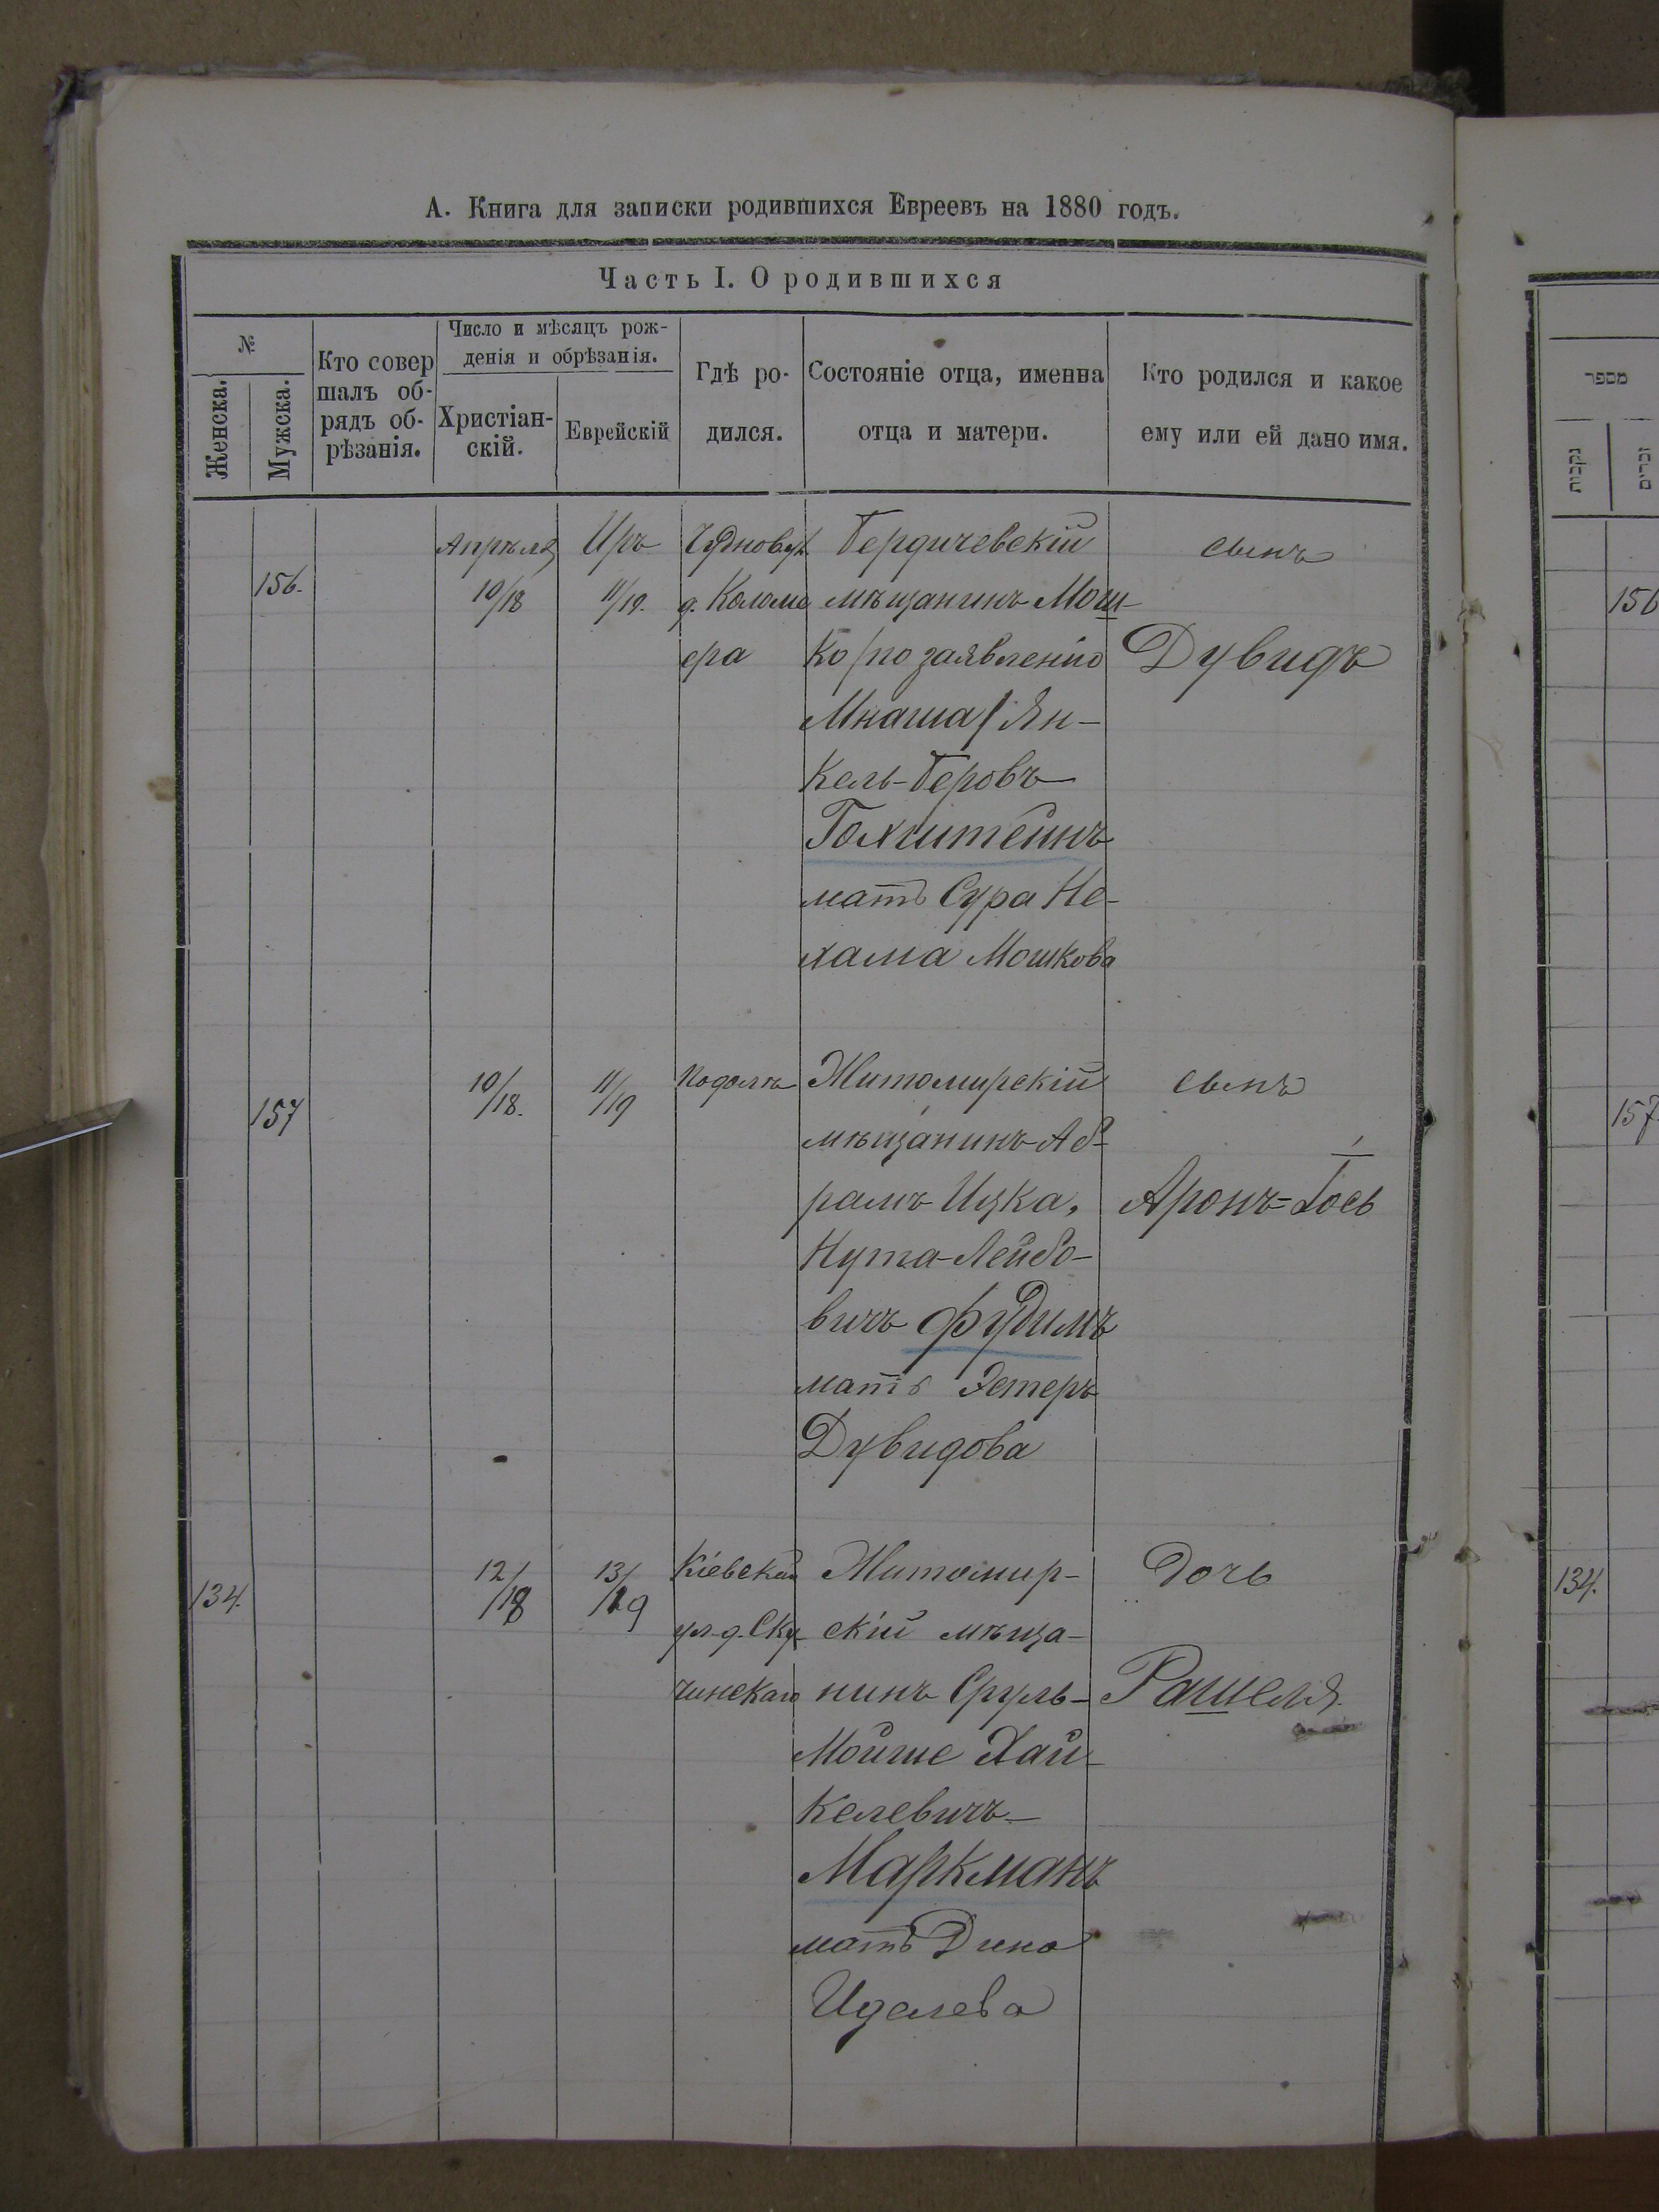 А. Книга для записки родившихся Евреевъ на 1880 годъ.
Часть I. О родившихся
№
Женска.
Мужска.
Кто совер
шалъ об-
рядъ об-
рѣзанія.
Число и мѣсяцъ рож-
денія и обрѣзанія.
Христіан-
скій.
Еврейскій
Гдѣ ро-
дился.
Состояніе отца, именна
отца и матери.
Кто родился и какое
ему или ей дано имя.
מספר
נקבות
זכרים
156.
Апрѣля
10/18
Иръ
11/19.
д. Коломе
ера
Бердичевскій
мѣщанинъ Мош-
ко/по заявленію
Мнаша/Ян-
кель-Беровъ
Голштейнъ
мать Сура Не-
хама Мошкова
сынъ
Дувидъ
156
157
10/18.
11/19
Подолъ
Житомирскій
мѣщанинъ Аб-
рамъ Ицка,
Нута-Лейбо-
вичъ Фудимъ
мать Эстеръ
Дувидова
сынъ
Аронъ=Іось
157
134.
12/18
13/19
Кіевская
ул. д. Ску-
чинскаго
Житомир-
скій мѣща-
нинъ Сруль-
Мойше Хай-
келевичъ
Маркманъ
мать Дина
Иделева
Дочь
Рашеля.
134.